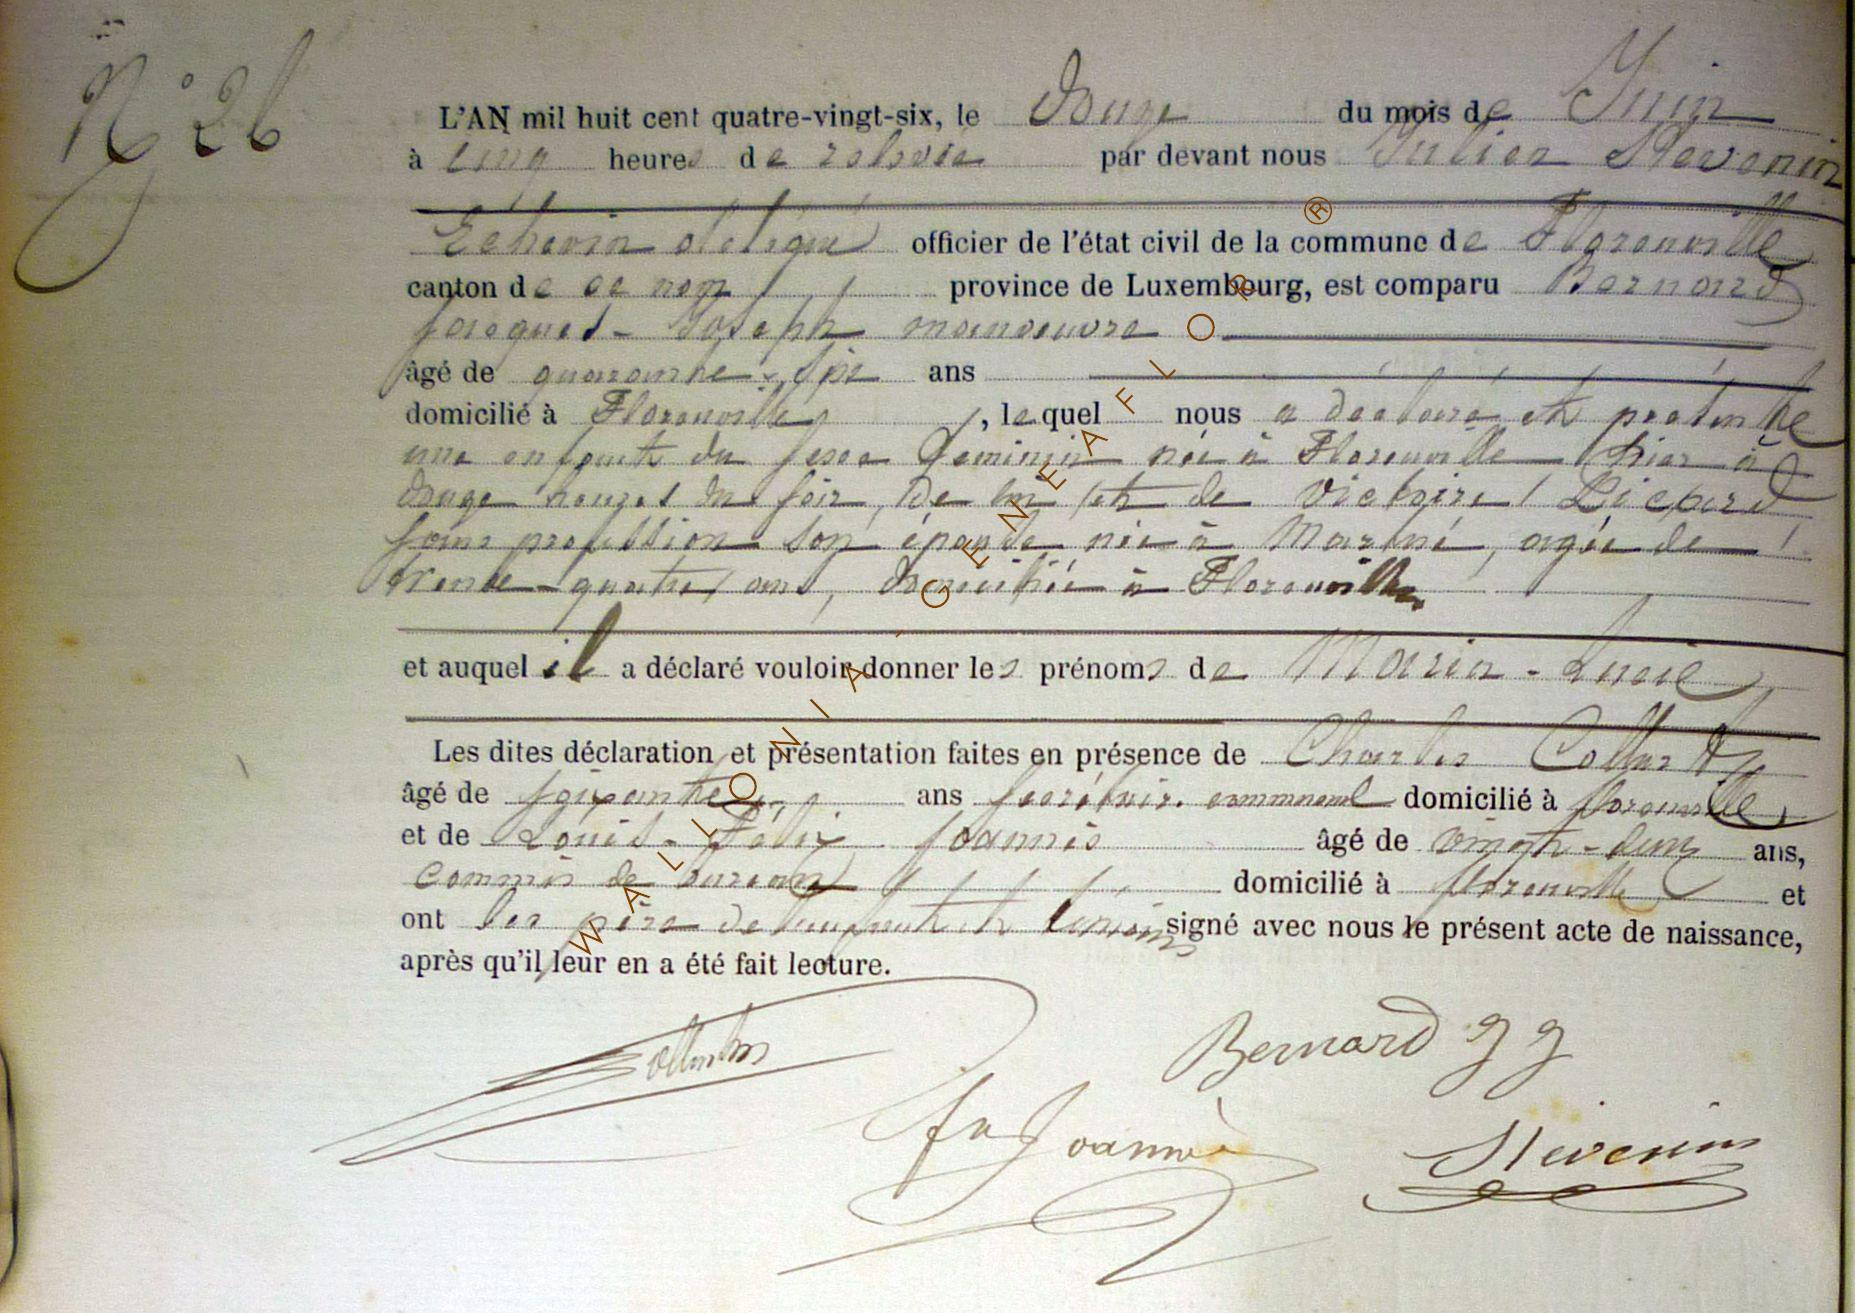 N° 26
L'AN mil huit cent quatre-vingt-six, le douze du mois de Juin
à cinq heures de relevée par devant nous Julien Stevenin
Echevin délégué officier de l'état civil de la commune de Florenville
canton de ce nom province de Luxembourg, est comparu Bernard
Jacques-Joseph manoeuvre
âgé de quarante-six ans
domicilié à Florenville, lequel nous a déclaré et présenté
une enfant du sexe féminin née à Florenville hier à
douze heures du soir, de lui et de Victoire
sans profession son épouse née à agée de
trente-quatre ans, domiciliée à Florenville
et auquel il a déclaré vouloir donner les prénoms de Maria-Lucie
Les dites déclaration et présentation faites en présence de Charles Collard
âgé de soixante ans secrétaire communal domicilié à florenville
et de Louis-Félix Joannès âgé de vingt-deux ans,
commis de bureau domicilié à florenville et
ont les père de l'enfant et témoins signé avec nous le présent acte de naissance,
après qu'il leur en a été fait lecture.
Bernard J J
Joannès
Stevenin
WALLONIA - GENEAFLOR ®